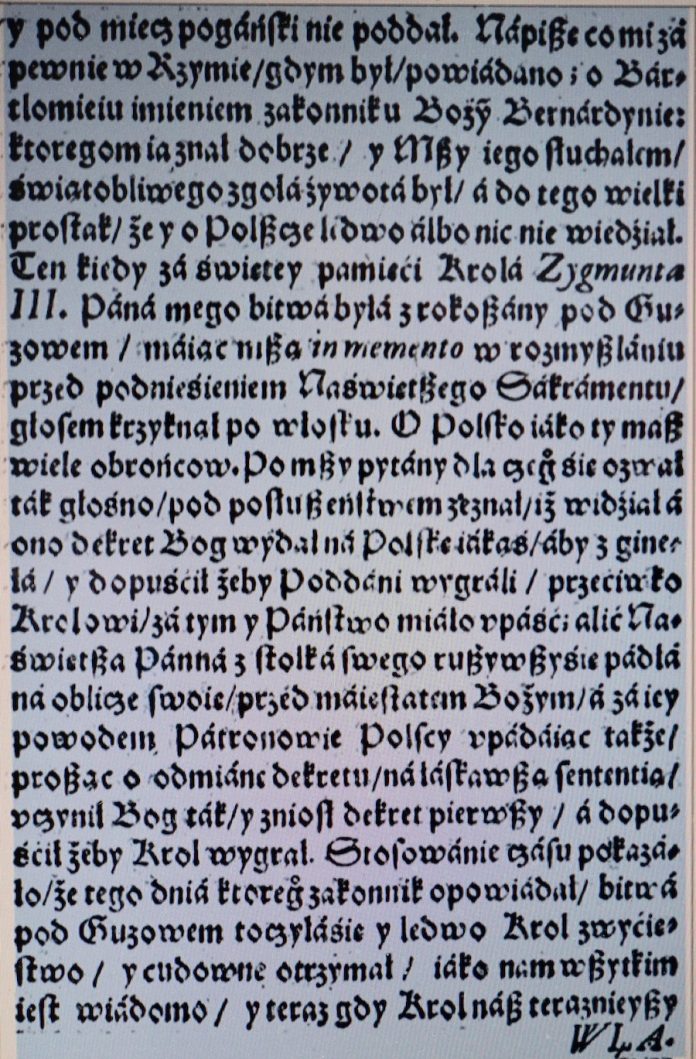 y pod miecz pogáński nie poddał. Nápiße co mi zá
pewnie w Rzymie/gdym był/powiádano; o Bár-
tlomieiu imieniem zakonniku Bożỹ Bernárdynie:
ktoregom ia znał dobrze/ y Mßy iego słuchałem/
świątobliwego zgołá żywotá był/ á do tego wielki
prostak/ że y o Polßcze ledwo álbo nic nie wiedział.
Ten kiedy zá świetey pamięci Krolá Zygmunta
III. Páná mego bitwá byłá z rokoßány pod Gu-
zowem / máiąc mßą in memento w rozmyßlániu
przed podniesieniem Naświetßego Sákrámentu/
głosem krzyknął po włosku. O Polsko iáko ty maß
wiele obrońcow. Po mßy pytány dla czeg̊ sie ozwał
ták głośno/pod posłußeństwem zeznał/iż widział á
ono dekret Bog wydał ná Polskę iákąś/áby zginę-
łá / y dopuścił żeby Poddáni wygráli / przeciwko
Krolowi/zá tym y Páństwo miáło vpáść; alić Na-
świetßa Pánná z stołká swego rußywßysie pádłá
ná oblicze swoie/przed máiestatem Bożym/á zá iey
powodem Pátronowie Polscy vpádáiąc także/
proßąc o odmiánę dekretu/ná łáskáwßą sententią/
vczynił Bog ták/y zniosł dekret pierwßy / á dopu-
ścił żeby Krol wygrał. Stosowánie czásu pokazá-
ło/że tego dniá ktoreg̊ zakonnik opowiádał/ bitwá
pod Guzowem toczyłásie y ledwo Krol zwycię-
stwo / y cudowne otrzymał / iáko nam wßytkim
iest wiádomo / y teraz gdy Krol náß teraznieyßy
WLA.